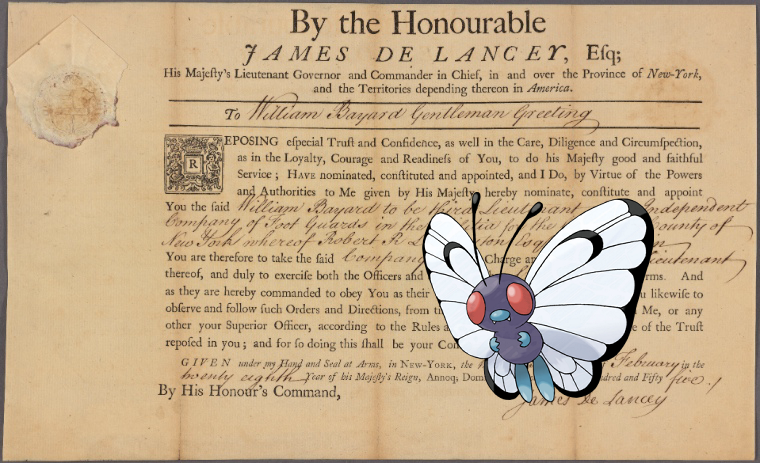 By the Honourable
JAMES DE LANCEY, Eſq;
His Majeſty's Lieutenant Governor and Commander in Chief, in and over the Province of New-York,
and the Territories depending thereon in America.
To William Bayard Gentleman Greeting
REPOSING eſpecial Truſt and Confidence, as well in the Care, Diligence and Circumſpection,
as in the Loyalty, Courage and Readineſs of You, to do his Majeſty good and faithful
Service; HAVE nominated, conſtituted and appointed, and I DO, by Virtue of the Powers
and Authorities to Me given by His Majeſty, hereby nominate, conſtitute and appoint
You the ſaid William Bayard to be third Lieutenant Independent
Company of Foot Guards in the for the County of
New York whereof Robert R
You are therefore to take the ſaid Company Charge Lieutenant
thereof, and duly to exerciſe both the Officers and And
as they are hereby commanded to obey You as their likewiſe to
obſerve and follow ſuch Orders and Directions, from Me, or any
other your Superior Officer, according to the Rules of the Truſt
repoſed in you; and for ſo doing this ſhall be your
GIVEN under my Hand and Seal at Arms, in NEW-YORK, the February in the
twenty eighth Year of his Majeſty's Reign, Annoq; and Fifty five
By His Honour's Command,
James De Lancey